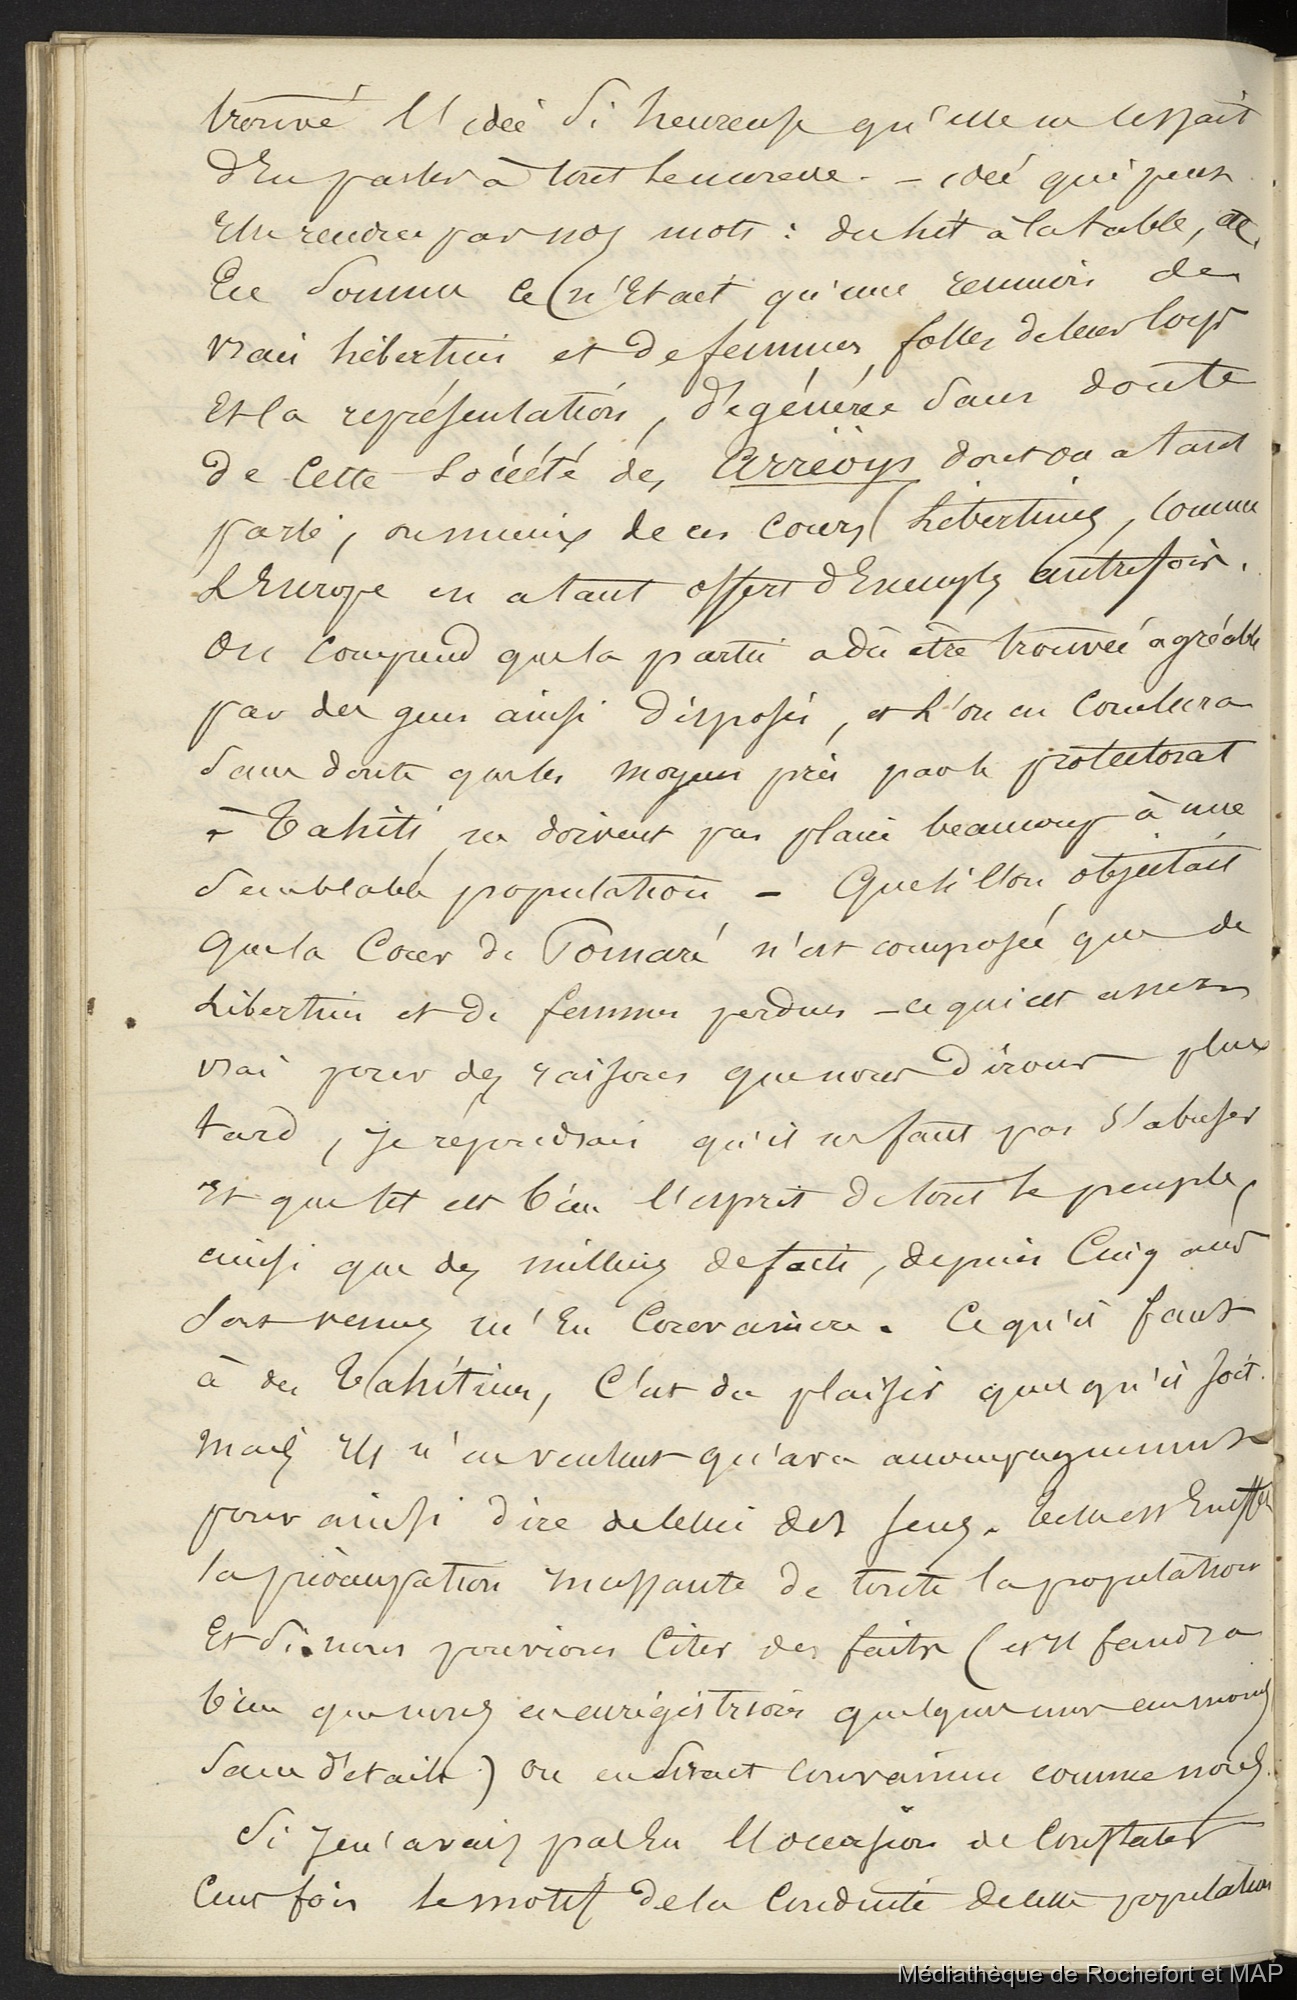 trouvé l'idée si heureuse qu'elle ne cessait
d'en parler à tout le monde. — idée qui peut
être rendue par nos mots : du lit à la table, etc.
En somme ce n'était qu'une réunion de
vrais libertins et de femmes folles de leur corps
Et la représentation, dégénérée sans doute
de cette société des Arréoys dont on a tant
parlé, ou mieux de ces cours libertines, comme
L'Europe en a tant offert d'Exemples autrefois.
On comprend que la partie a dû être trouvée agréable
par des gens ainsi disposés, et l'on en conclura
sans doute que les moyens pris par le protectorat
à Tahiti ne doivent pas plaire beaucoup à une
semblable population — Que si l'on objectait
que la Cour de Pomaré n'est composée que de
libertins et de femmes perdues — ce qui est assez
vrai pour des raisons que nous dirons plus
tard, je répondrais qu'il ne faut pas s'abuser
et que tel est bien l'esprit de tout le peuple,
ainsi que des milliers de faits, depuis Cinq ans
sont venus m'En Convaincre. Ce qu'il faut
à des Tahitiens, C'est du plaisir quel qu'il soit.
Mais ils n'en veulent qu'avec accompagnement
pour ainsi dire de celui des sens. telle est En effet
la préoccupation incessante de toute la population
Et si nous pouvions Citer des faits (et il faudra
bien que nous en enregistrions quelques uns au moins
sans détails) on en serait convaincu comme nous.
Si je n'avais pas Eu l'occasion de Constater
Cent fois le motif de la Conduite de cette population
Médiathèque de Rochefort et MAP